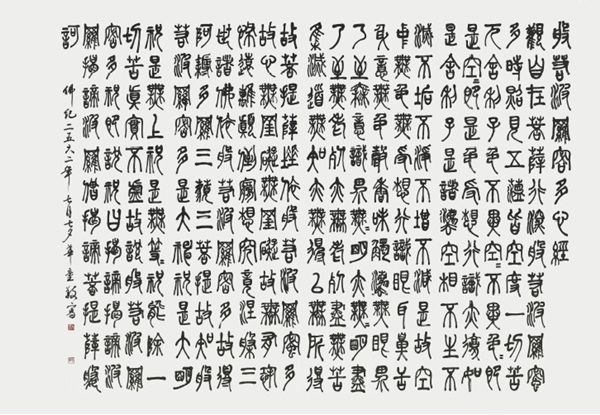 般若波羅蜜多心經
觀自在菩薩行深般若波羅蜜
多時照見五蘊皆空度一切苦
厄舍利子色不異空=不異色=即
是空=即是色受想行識亦復如
是舍利子是諸法空相不生不
滅不垢不淨不增不減是故空
中無色無受想行識無眼耳鼻舌
身意無色聲香味觸法無眼界
乃至無意識界無=明亦無=明盡
乃至無老死亦無老死盡無苦
集滅道無智亦無得以無所得
故菩提薩埵依般若波羅蜜多
故心無罣礙無罣礙故無有恐
怖遠離顛倒夢想究竟涅槃三
世諸佛依般若波羅蜜多故得
阿耨多羅三藐三菩提故知般
若波羅蜜多是大神咒是大明
咒是無上咒是無等=咒能除一
切苦真實不虛故說般若波羅
蜜多咒即說咒曰揭諦揭諦波
羅揭諦波羅僧揭諦菩提薩婆
訶
佛紀二五六二年七月七夕